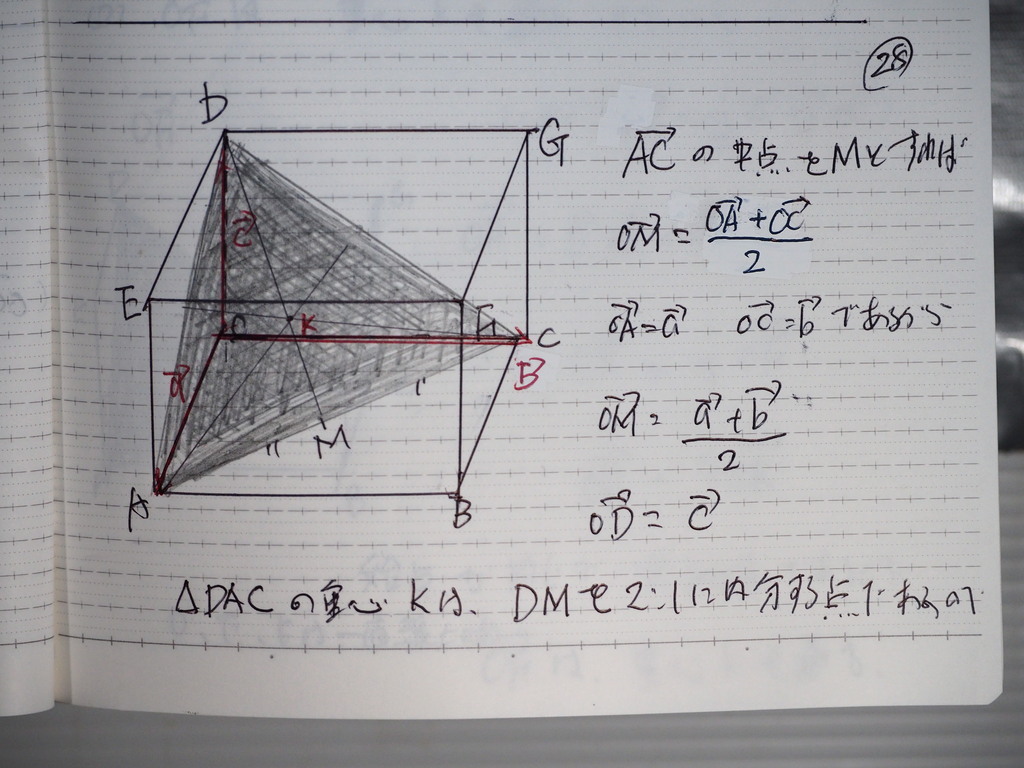 ㉘
D
G
c⃗
E
F
O
K
C
b⃗
a⃗
M
A
B
AC⃗ の中点をMとすれば
OM⃗ = (OA⃗ + OC⃗)/2
OA⃗ = a⃗ OC⃗ = b⃗ であるから
OM⃗ = (a⃗ + b⃗)/2
OD⃗ = c⃗
△DACの重心 Kは、DMを2:1に内分する点であるので